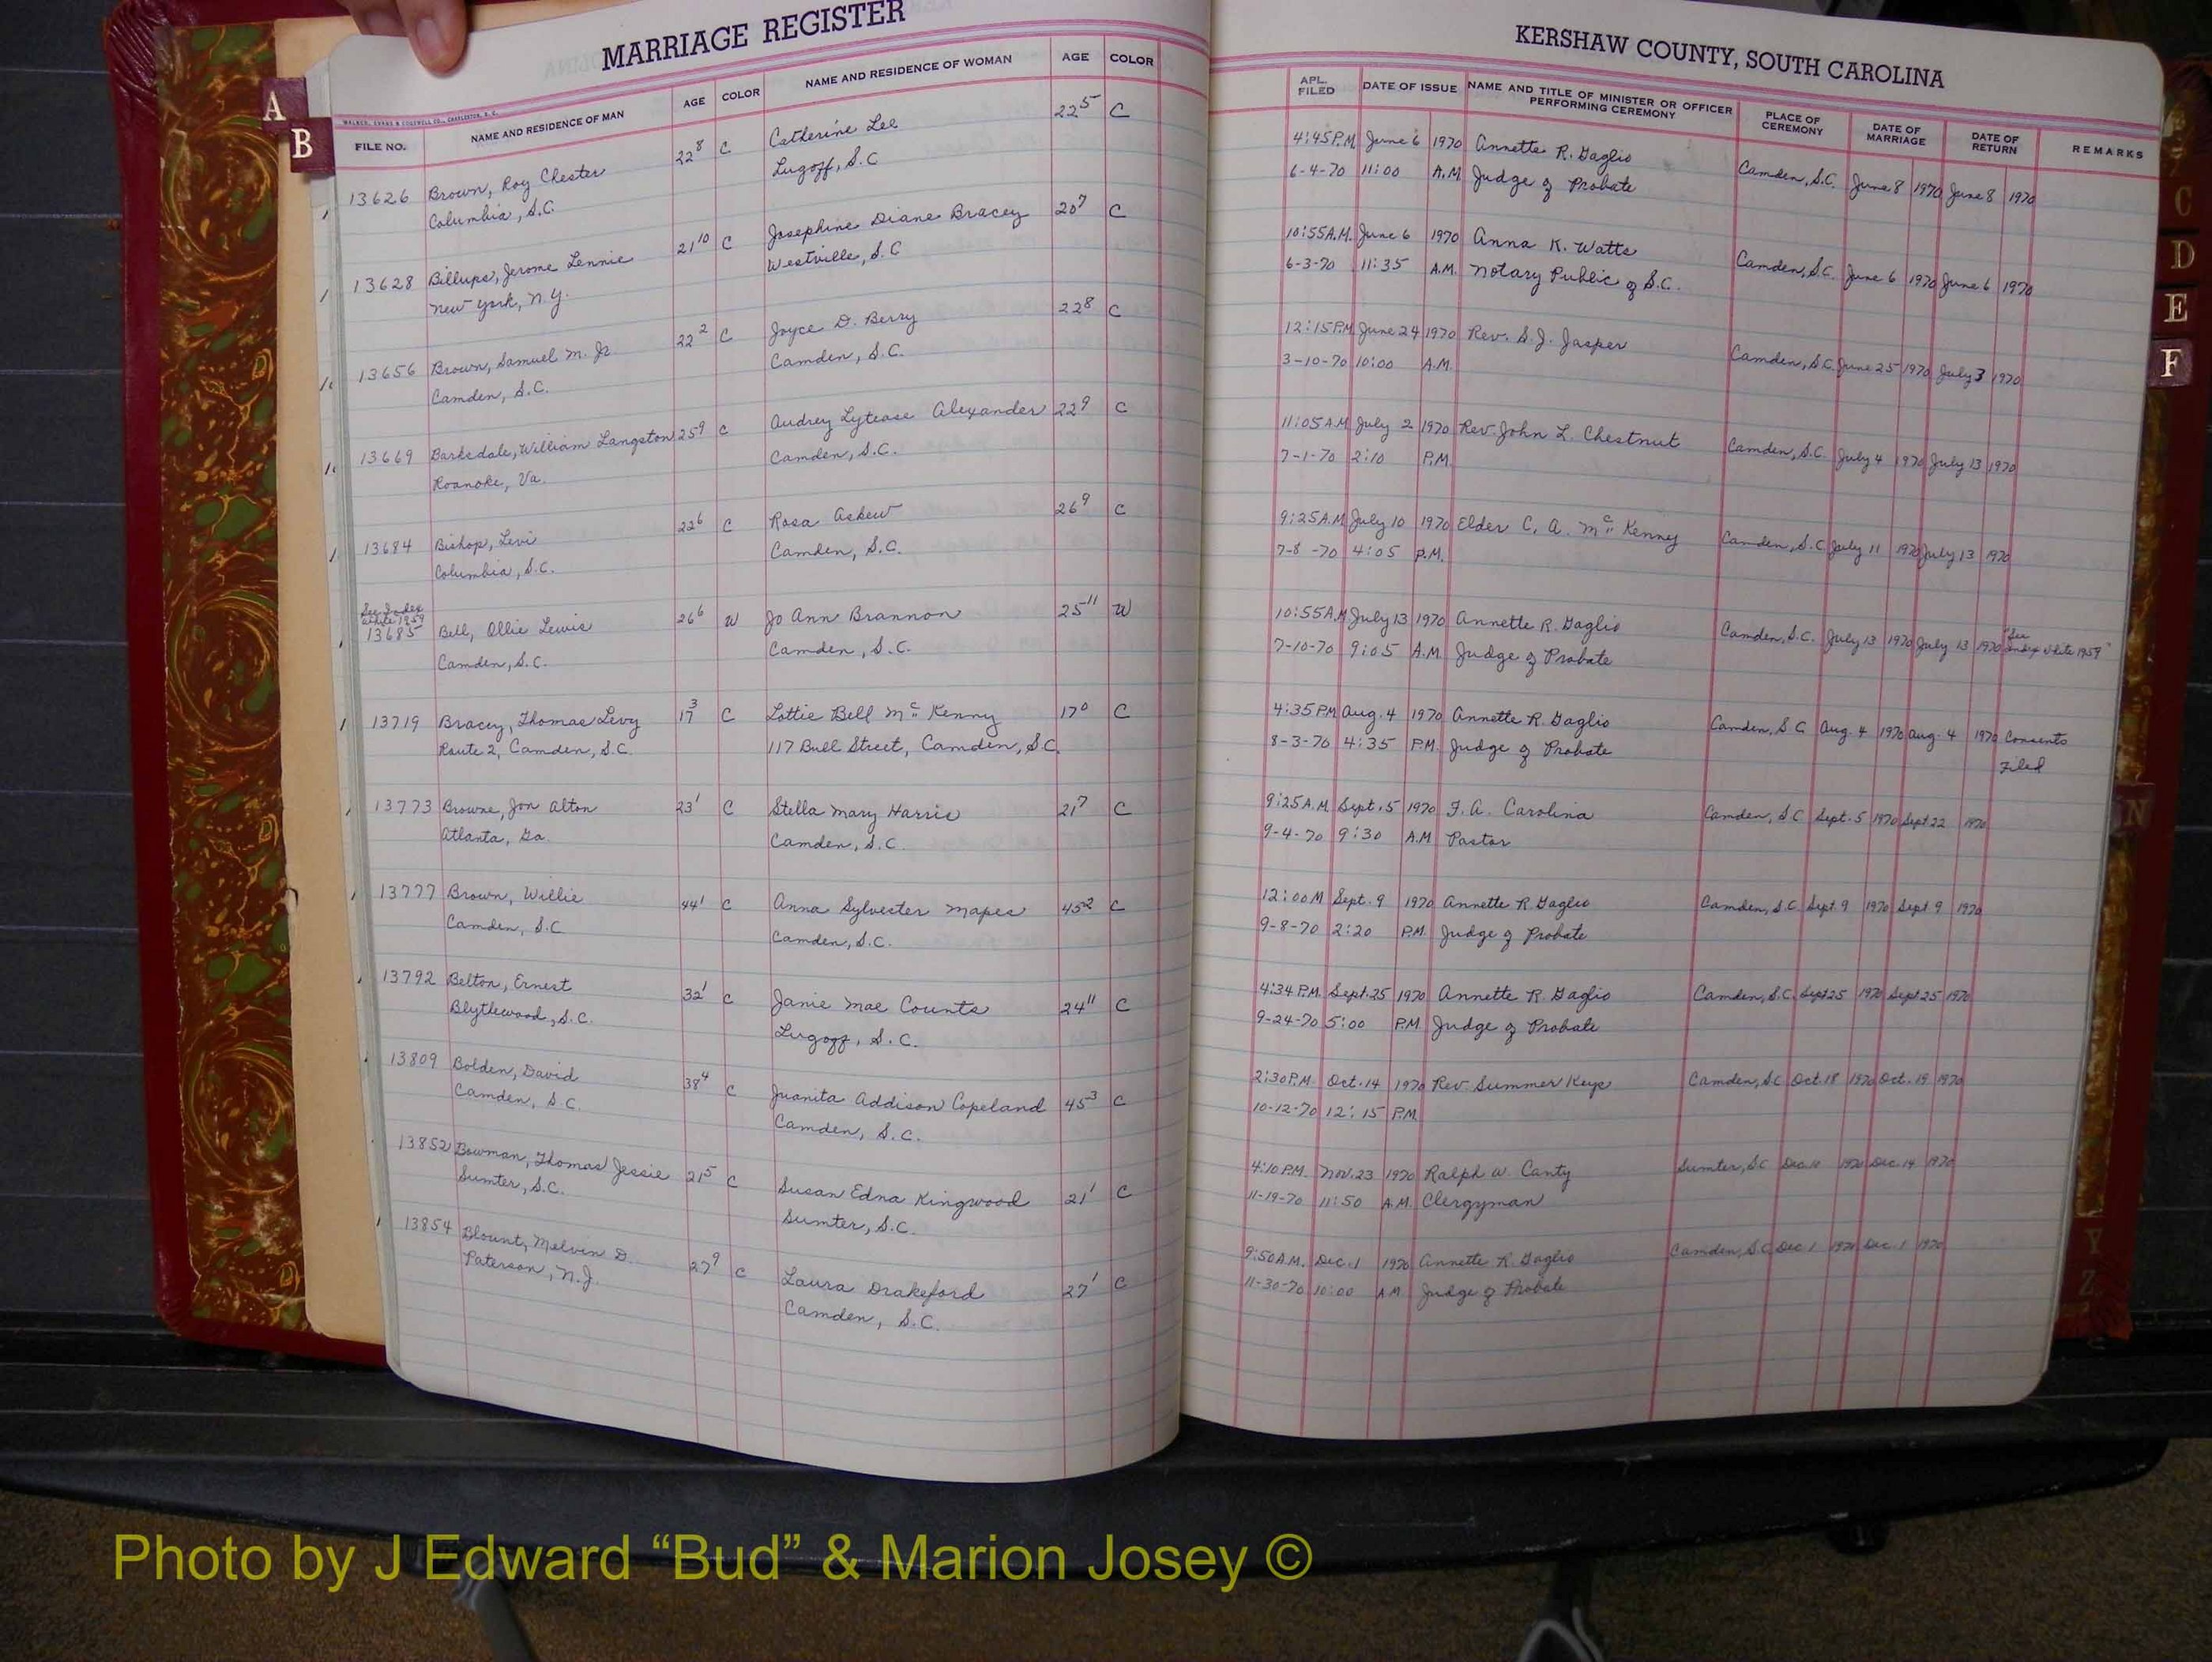 MARRIAGE REGISTER
WALKER, EVANS & COGSWELL CO., CHARLESTON, S. C.
FILE NO. NAME AND RESIDENCE OF MAN AGE COLOR NAME AND RESIDENCE OF WOMAN AGE COLOR
A
B
13626 Brown, Roy Chester 22 8 C Catherine Lee 22 5 C
Columbia, S.C. Lugoff, S.C
13628 Billups, Jerome Lennie 21 10 C Josephine Diane Bracey 20 7 C
New York, N.Y. Westville, S.C
13656 Brown, Samuel M. Jr 22 2 C Joyce D. Berry 22 8 C
Camden, S.C. Camden, S.C.
13669 Barksdale, William Langston 25 9 C Audrey Lytease Alexander 22 9 C
Roanoke, Va. Camden, S.C.
13684 Bishop, Levi 22 6 C Rosa Askew 26 9 C
Columbia, S.C. Camden, S.C.
See Index
White 1959
13685 Bell, Ollie Lewis 26 6 W Jo Ann Brannon 25 11 W
Camden, S.C. Camden, S.C.
13719 Bracey, Thomas Levy 17 3 C Lottie Bell McKenny 17 0 C
Route 2, Camden, S.C. 117 Bull Street, Camden, S.C.
13773 Browne, Jon Alton 23 1 C Stella Mary Harris 21 7 C
Atlanta, Ga. Camden, S.C.
13777 Brown, Willie 44 1 C Anna Sylvester Mapes 45 2 C
Camden, S.C Camden, S.C.
13792 Belton, Ernest 32 1 C Janie Mae Counts 24 11 C
Blythewood, S.C. Lugoff, S.C.
13809 Bolden, David 38 4 C Juanita Addison Copeland 45 3 C
Camden, S.C. Camden, S.C.
13852 Bowman, Thomas Jessie 21 5 C Susan Edna Kingwood 21 1 C
Sumter, S.C. Sumter, S.C.
13854 Blount, Melvin D. 27 9 C Laura Drakeford 27 1 C
Paterson, N.J. Camden, S.C.
KERSHAW COUNTY, SOUTH CAROLINA
APL. FILED DATE OF ISSUE NAME AND TITLE OF MINISTER OR OFFICER PERFORMING CEREMONY PLACE OF CEREMONY DATE OF MARRIAGE DATE OF RETURN REMARKS
4:45 P.M. June 6 1970 Annette R. Gaglio Camden, S.C. June 8 1970 June 8 1970
6-4-70 11:00 A.M. Judge of Probate
10:55 A.M. June 6 1970 Anna K. Watts Camden, S.C. June 6 1970 June 6 1970
6-3-70 11:35 A.M. Notary Public of S.C.
12:15 P.M. June 24 1970 Rev. S.J. Jasper Camden, S.C. June 25 1970 July 3 1970
3-10-70 10:00 A.M.
11:05 A.M July 2 1970 Rev. John L. Chestnut Camden, S.C. July 4 1970 July 13 1970
7-1-70 2:10 P.M.
9:25 A.M July 10 1970 Elder C. A. McKenny Camden, S.C July 11 1970 July 13 1970
7-8-70 4:05 P.M.
10:55 A.M July 13 1970 Annette R. Gaglio Camden, S.C. July 13 1970 July 13 1970 "See Index White 1959"
7-10-70 9:05 A.M. Judge of Probate
4:35 PM Aug. 4 1970 Annette R. Gaglio Camden, S C Aug. 4 1970 Aug. 4 1970 Consents
8-3-70 4:35 P.M. Judge of Probate Filed
9:25 A.M. Sept. 5 1970 F. A. Carolina Camden, S C Sept. 5 1970 Sept 22 1970
9-4-70 9:30 A.M Pastor
12:00 M Sept. 9 1970 Annette R. Gaglio Camden, S.C Sept. 9 1970 Sept 9 1970
9-8-70 2:20 P.M. Judge of Probate
4:34 P.M. Sept. 25 1970 Annette R. Gaglio Camden, S.C. Sept 25 1970 Sept 25 1970
9-24-70 5:00 P.M. Judge of Probate
2:30 P.M. Oct. 14 1970 Rev. Summer Keys Camden, S.C Oct. 18 1970 Oct. 19 1970
10-12-70 12:15 P.M.
4:10 P.M. Nov. 23 1970 Ralph W. Canty Sumter, S.C Dec. 1970 Dec. 14 1970
11-19-70 11:50 A.M. Clergyman
9:50 A.M. Dec. 1 1970 Annette R. Gaglio Camden, S.C Dec 1 1970 Dec. 1 1970
11-30-70 10:00 A M Judge of Probate
C
D
E
F
N
Y
Z
Photo by J Edward “Bud” & Marion Josey ©